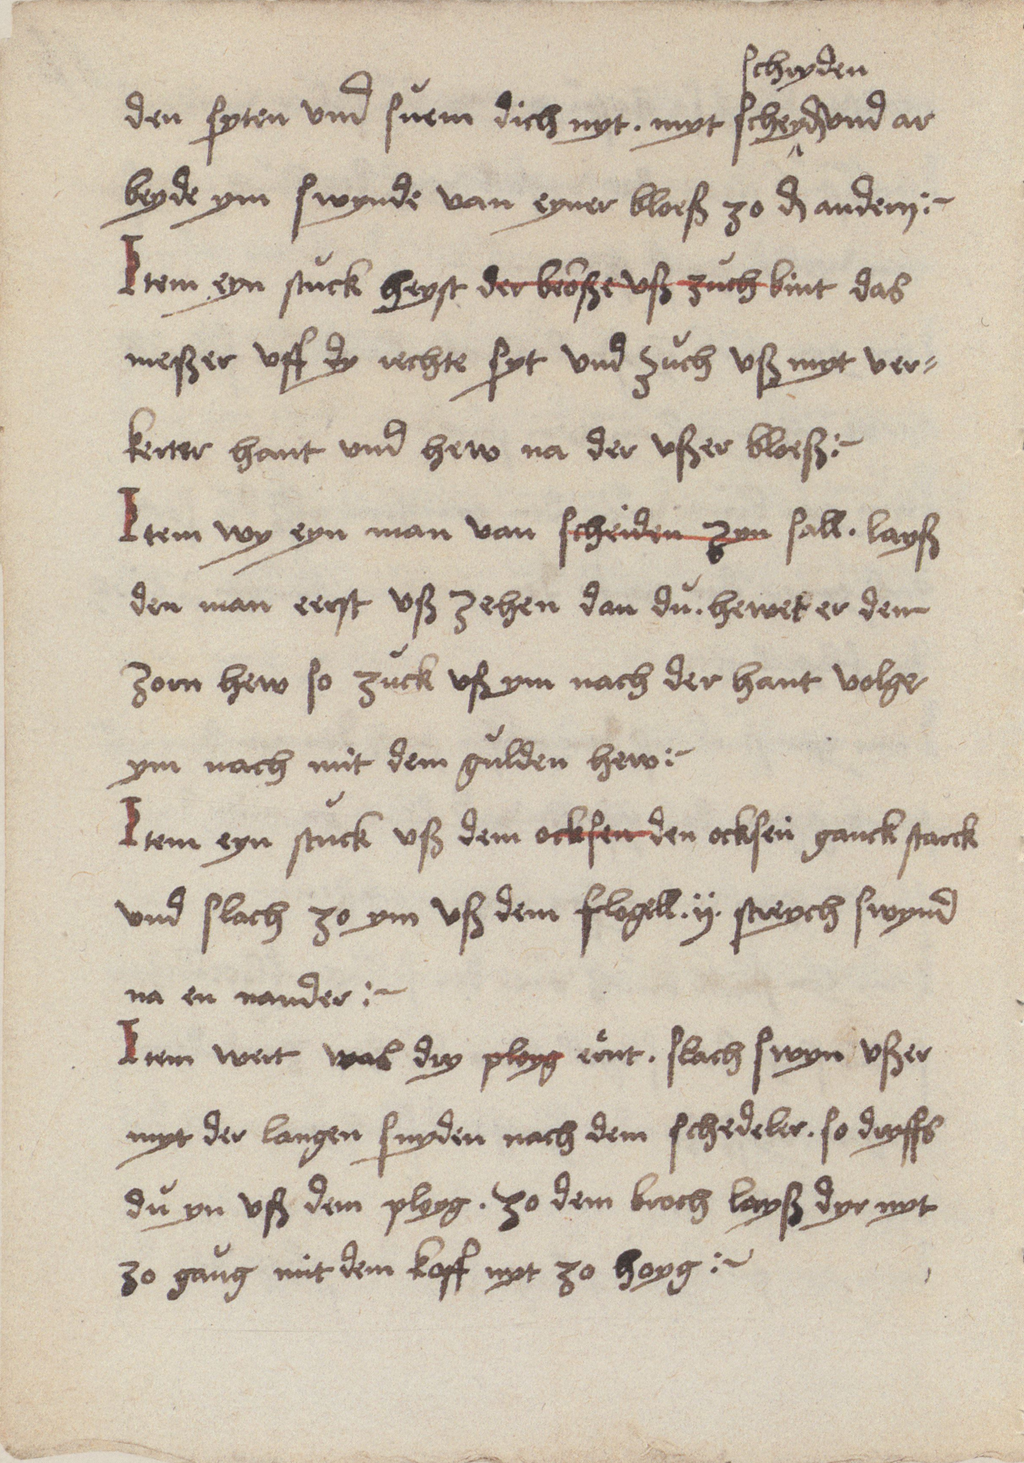 schnyden
den syten und suem dich nyt. myt scheyd und ar
beyde ym swynde van eyner bloeß zo d andern :~
Item eyn stuck heyst der boeße uß zuch bint das
meßer uff dy rechte syt und zuch uß myt ver=
kerter hant und hew na der ußer bloeß :~
Item wy eyn man van scheiden zyn sall. layß
den man eerst uß zehen dan du. hewet er den
zorn hew so zuck uß ym nach der hant volge
ym nach mit dem gulden hew :~
Item eyn stuck uß dem ocksen den ocksen ganck starck
und slach zo ym uß dem flogell .ij. streych swynd
na en nander :~
Item wert was dry ployg ernt. slach swyn ußer
myt der langen snyden nach dem schedeler. so dryffs
du yn uß dem ployg. zo dem broch layß dyr nyt
zo gaug mit dem koff nyt zo hoyg :~